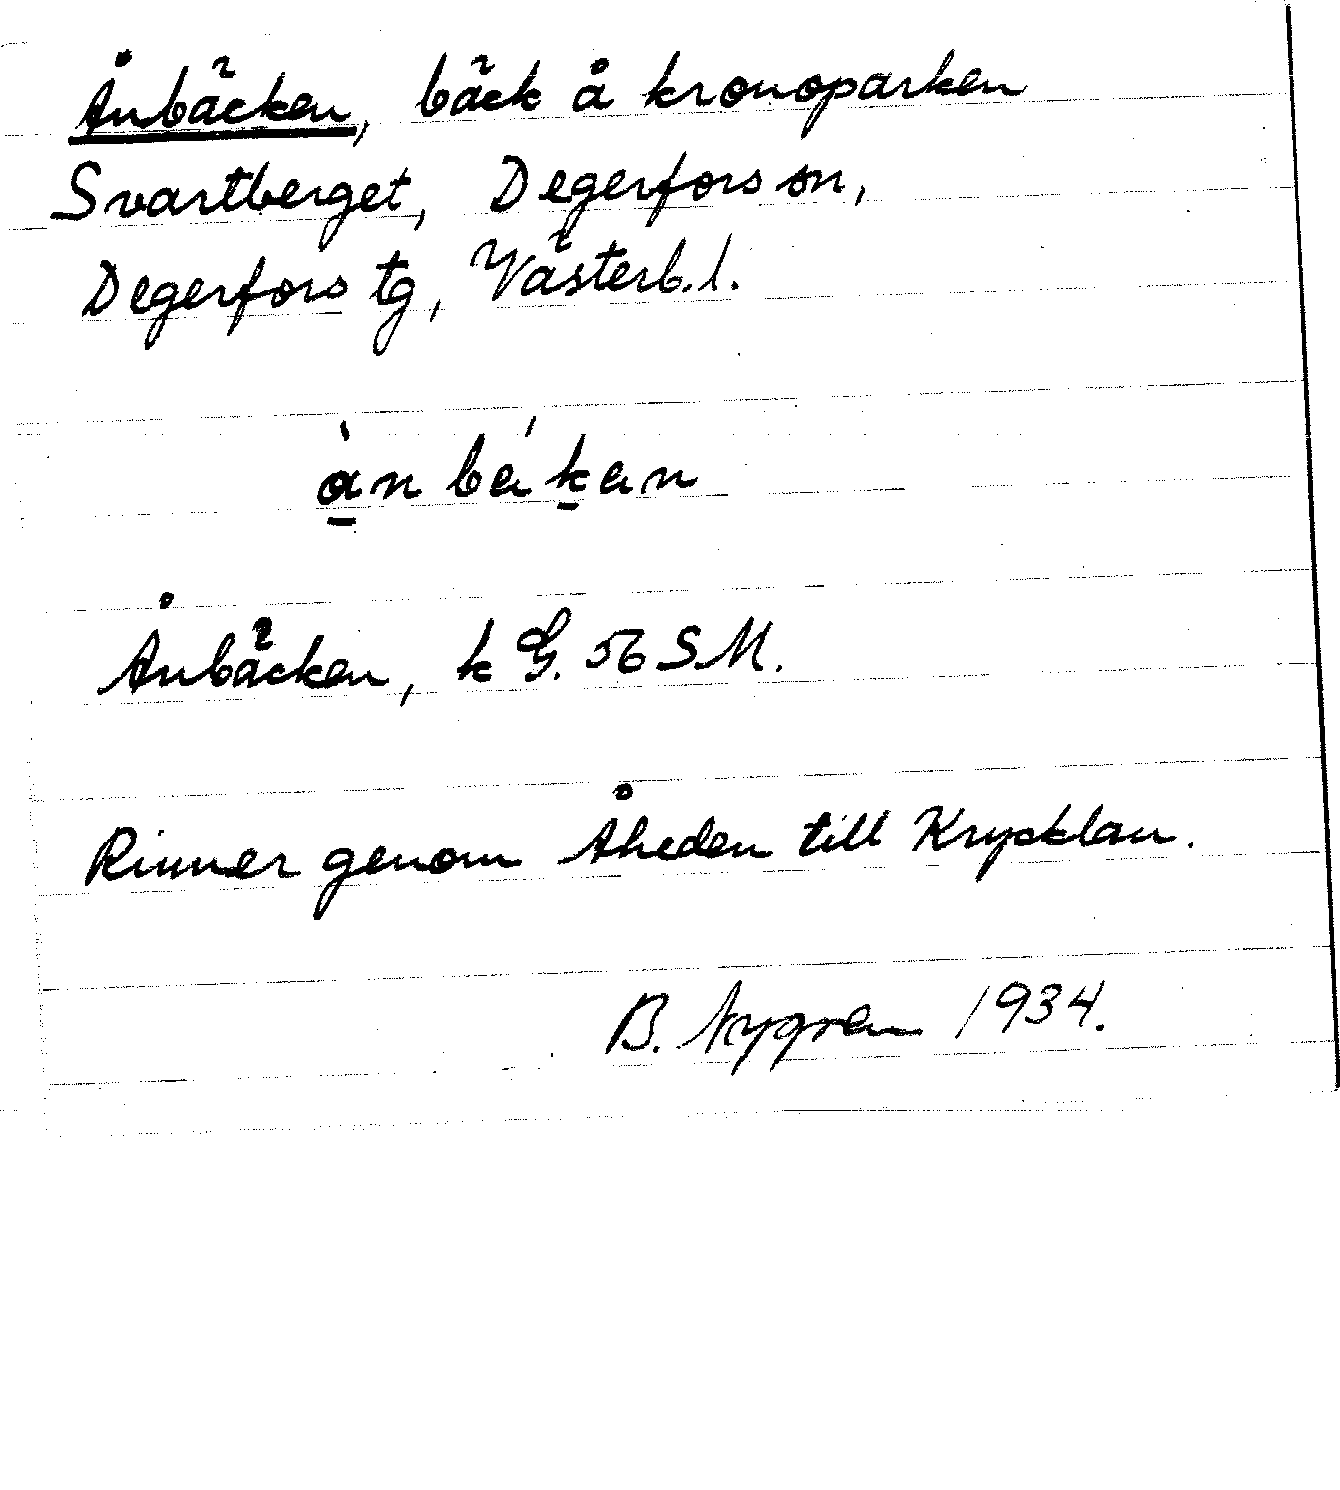 Ånbäcken, bäck å kronoparken
Svartberget, Degerfors sn,
Degerfors tg, Västerb. l.
Ånbäcken, k G. 56 SM.
Rinner genom Åheden till Krycklan.
B. Nygren 1934.